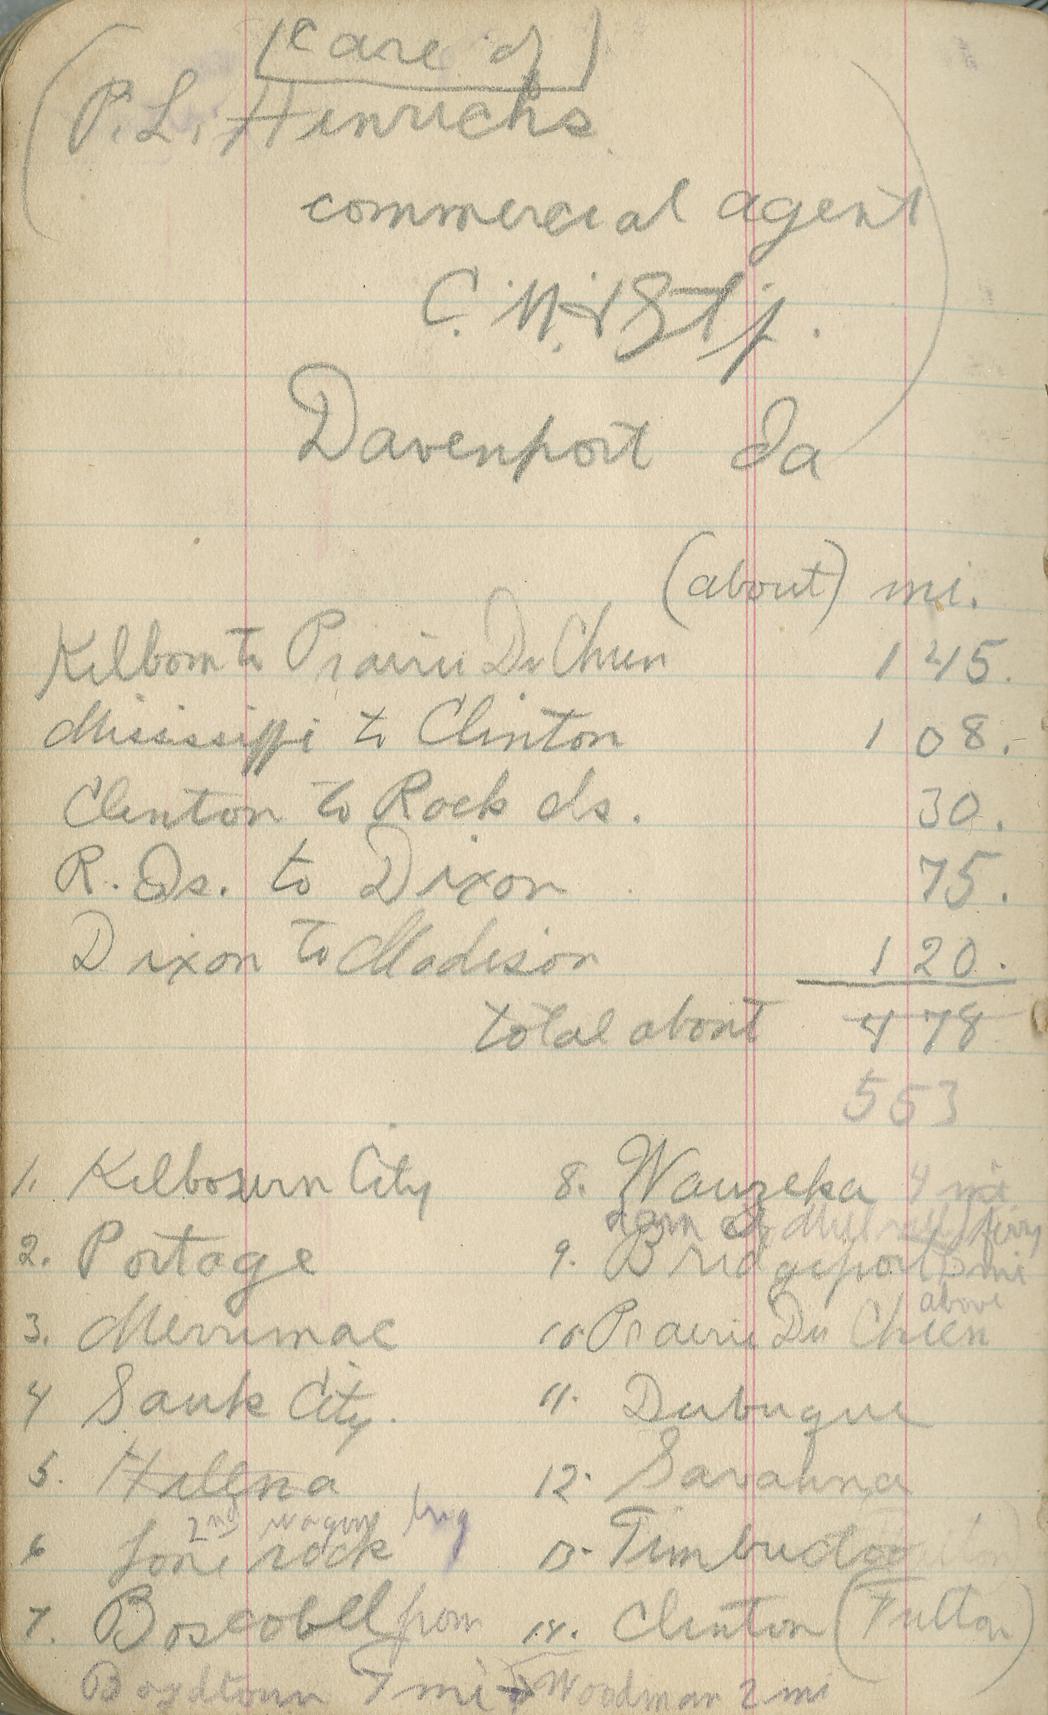 (care of)
(P. L. Hinrichs
commercial agent
C. M. & St. P.
Davenport Ia)
(about) mi.
Kilborn to Prairie Du Chien 145.
Mississippi to Clinton 108.
Clinton to Rock Is. 30.
R. Is. to Dixon 75.
Dixon to Madison 120.
total about 478
553
1. Kilbourn City
2. Portage
3. Merrimac
4 Sauk City.
5. Helena
2nd wagon brig
6 Lone rock
7. Boscobell from
Boydtown 7 mi → Woodman 2 mi
8. Wauzeka 4 mi
ferry
9. Bridgeport mi
above
10. Prairie Du Chien
11. Dubuque
12. Savanna
13. Timbuctoo
14. Clinton (Fulton)